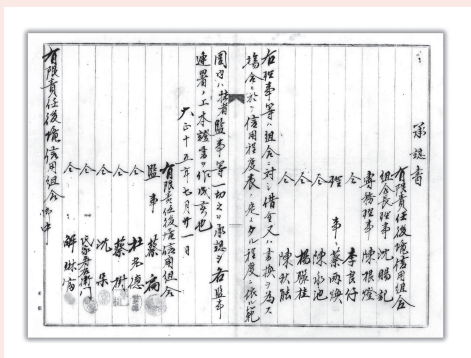 承認書
有限責任後境信用組合
組合長理事 沈賜記
專務理事 陳根燈
仝 李良仔
理事 蔡両煥
仝 陳永池
仝 楊祿桂
仝 陳秋
右理事等ハ組合ニ対シ借令又ハ書換ヲ為ス
場合ニ於テ信用程度表ニ定メタル程度ニ依ル範
囲内ハ拙者監事等一切之ヲ承認シ右監事
連署ノ上本證書ヲ作成ス也
大正十五年七月廿一日
有限責任後境信用組合
監事 蔡病
仝 杜老德
仝 蔡樹
仝 沈朵
仝
仝 解琳
有限責任後境信用組合 御中